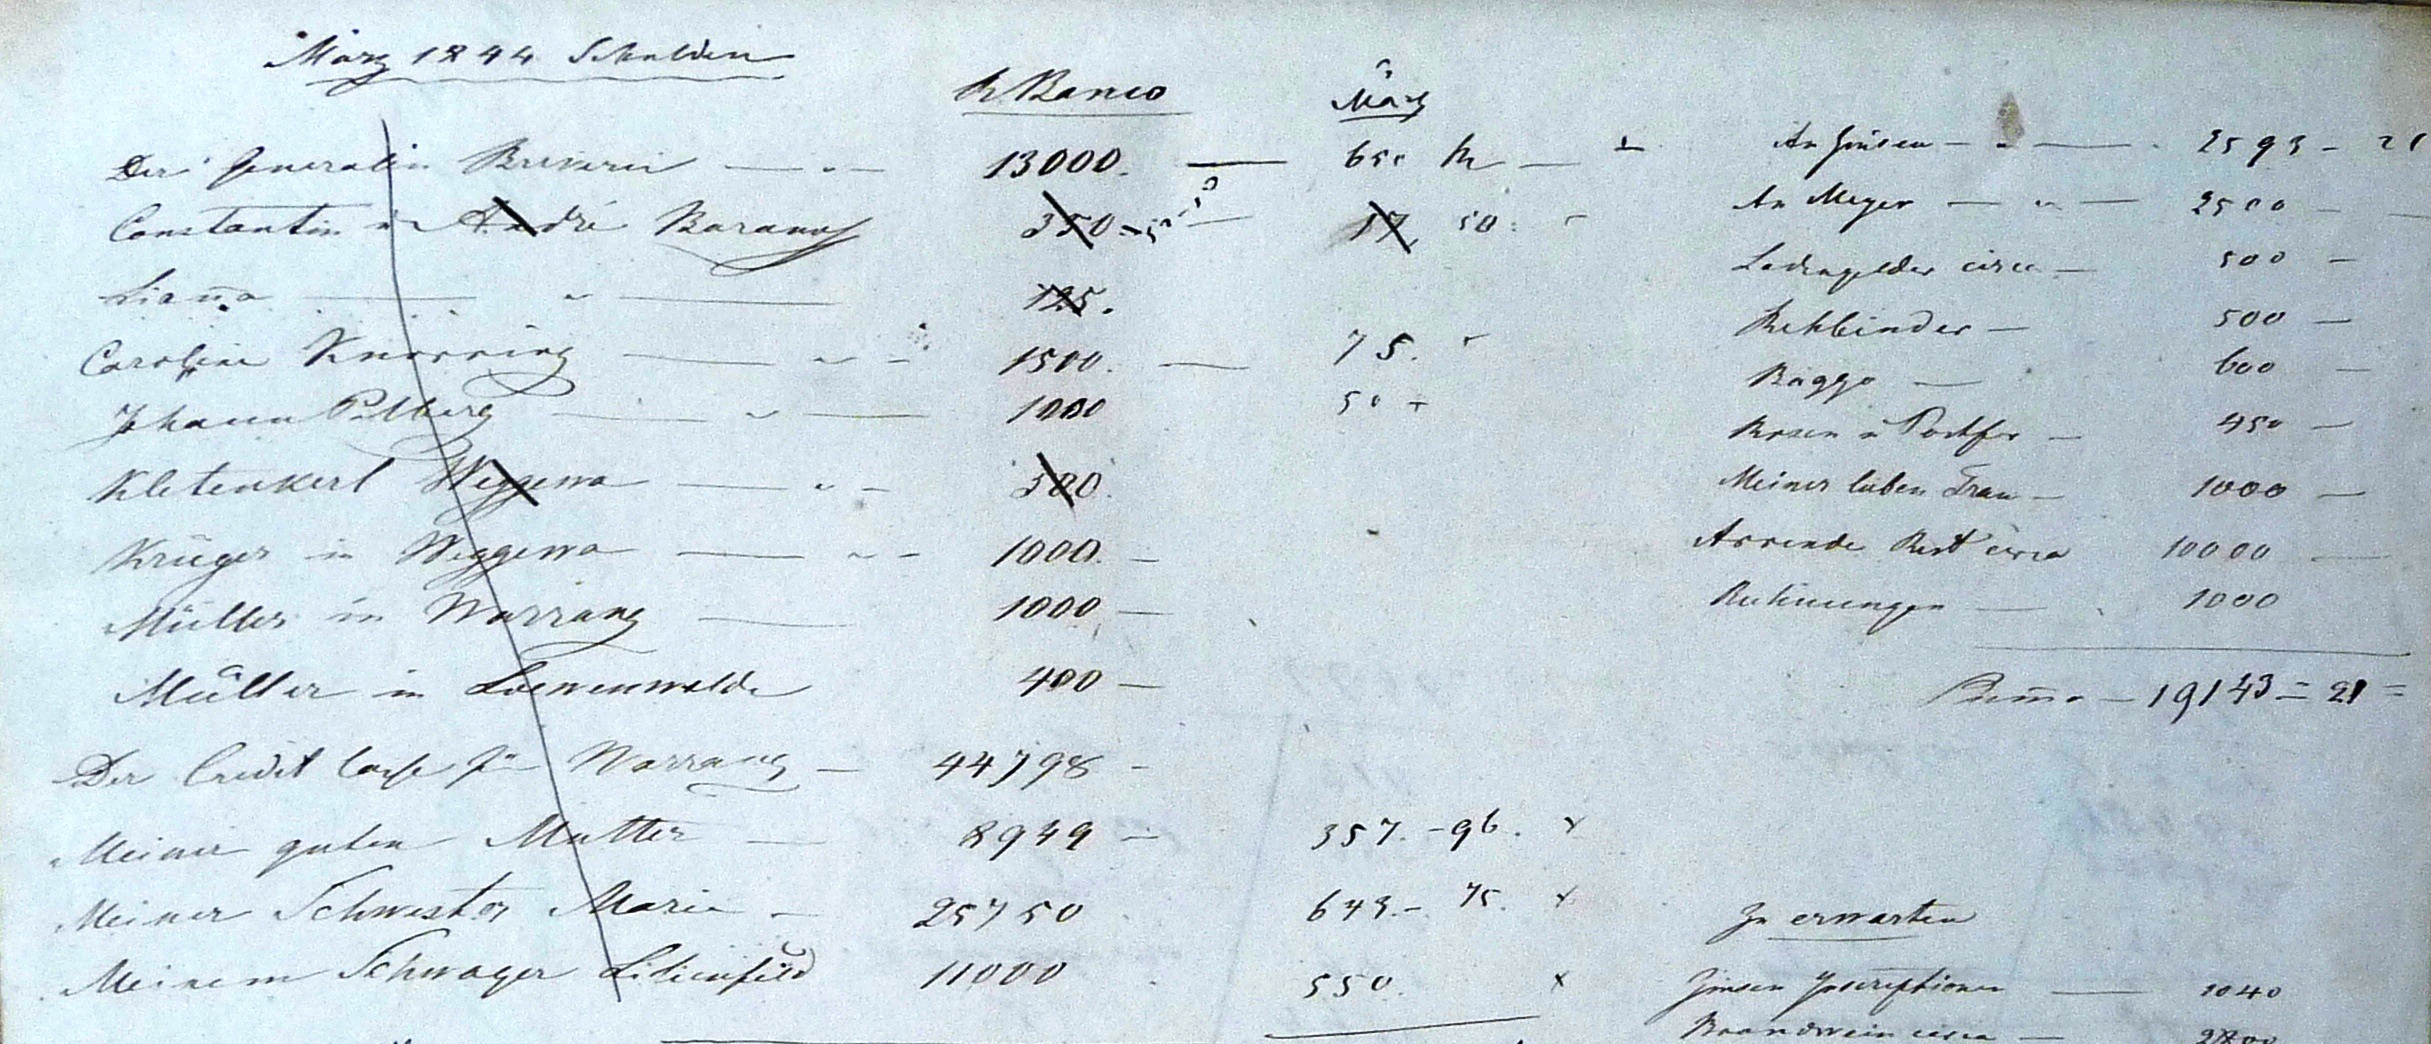 März 1844 Schulden
R Banco März
Der Generalin Brevern 13000. — 650 R —
Constantin u André Baranoff 350 17 50
Liana 125.
Caroline Knorring 1500. — 75.
Johann Patberg 1000 50
Kletenkerl Weggewa 300.
Krüger in Weggewa 1000. —
Müller in Warrang 1000 —
Müller in Loewenwolde 400 —
Der Credit Casse für Warrang — 44798 —
Meiner guten Mutter — 8949 — 357. - 96.
Meiner Schwester Marie — 25750 643. - 75.
Meinem Schwager Lilienfeld 11000 550.
An Zinsen — 2593 - 21
An Meyer — 2500 —
Ladengelder circa — 500 —
Rehbinder — 500 —
Baggo — 600 —
Rosen u — 450 —
Meiner lieben Frau — 1000 —
Arrende Rest circa 10000 —
Rechnungen — 1000
19143 = 21 =
Zu erwarten
Zinsen Inscriptionen — 1040
Brandwein circa — 2800